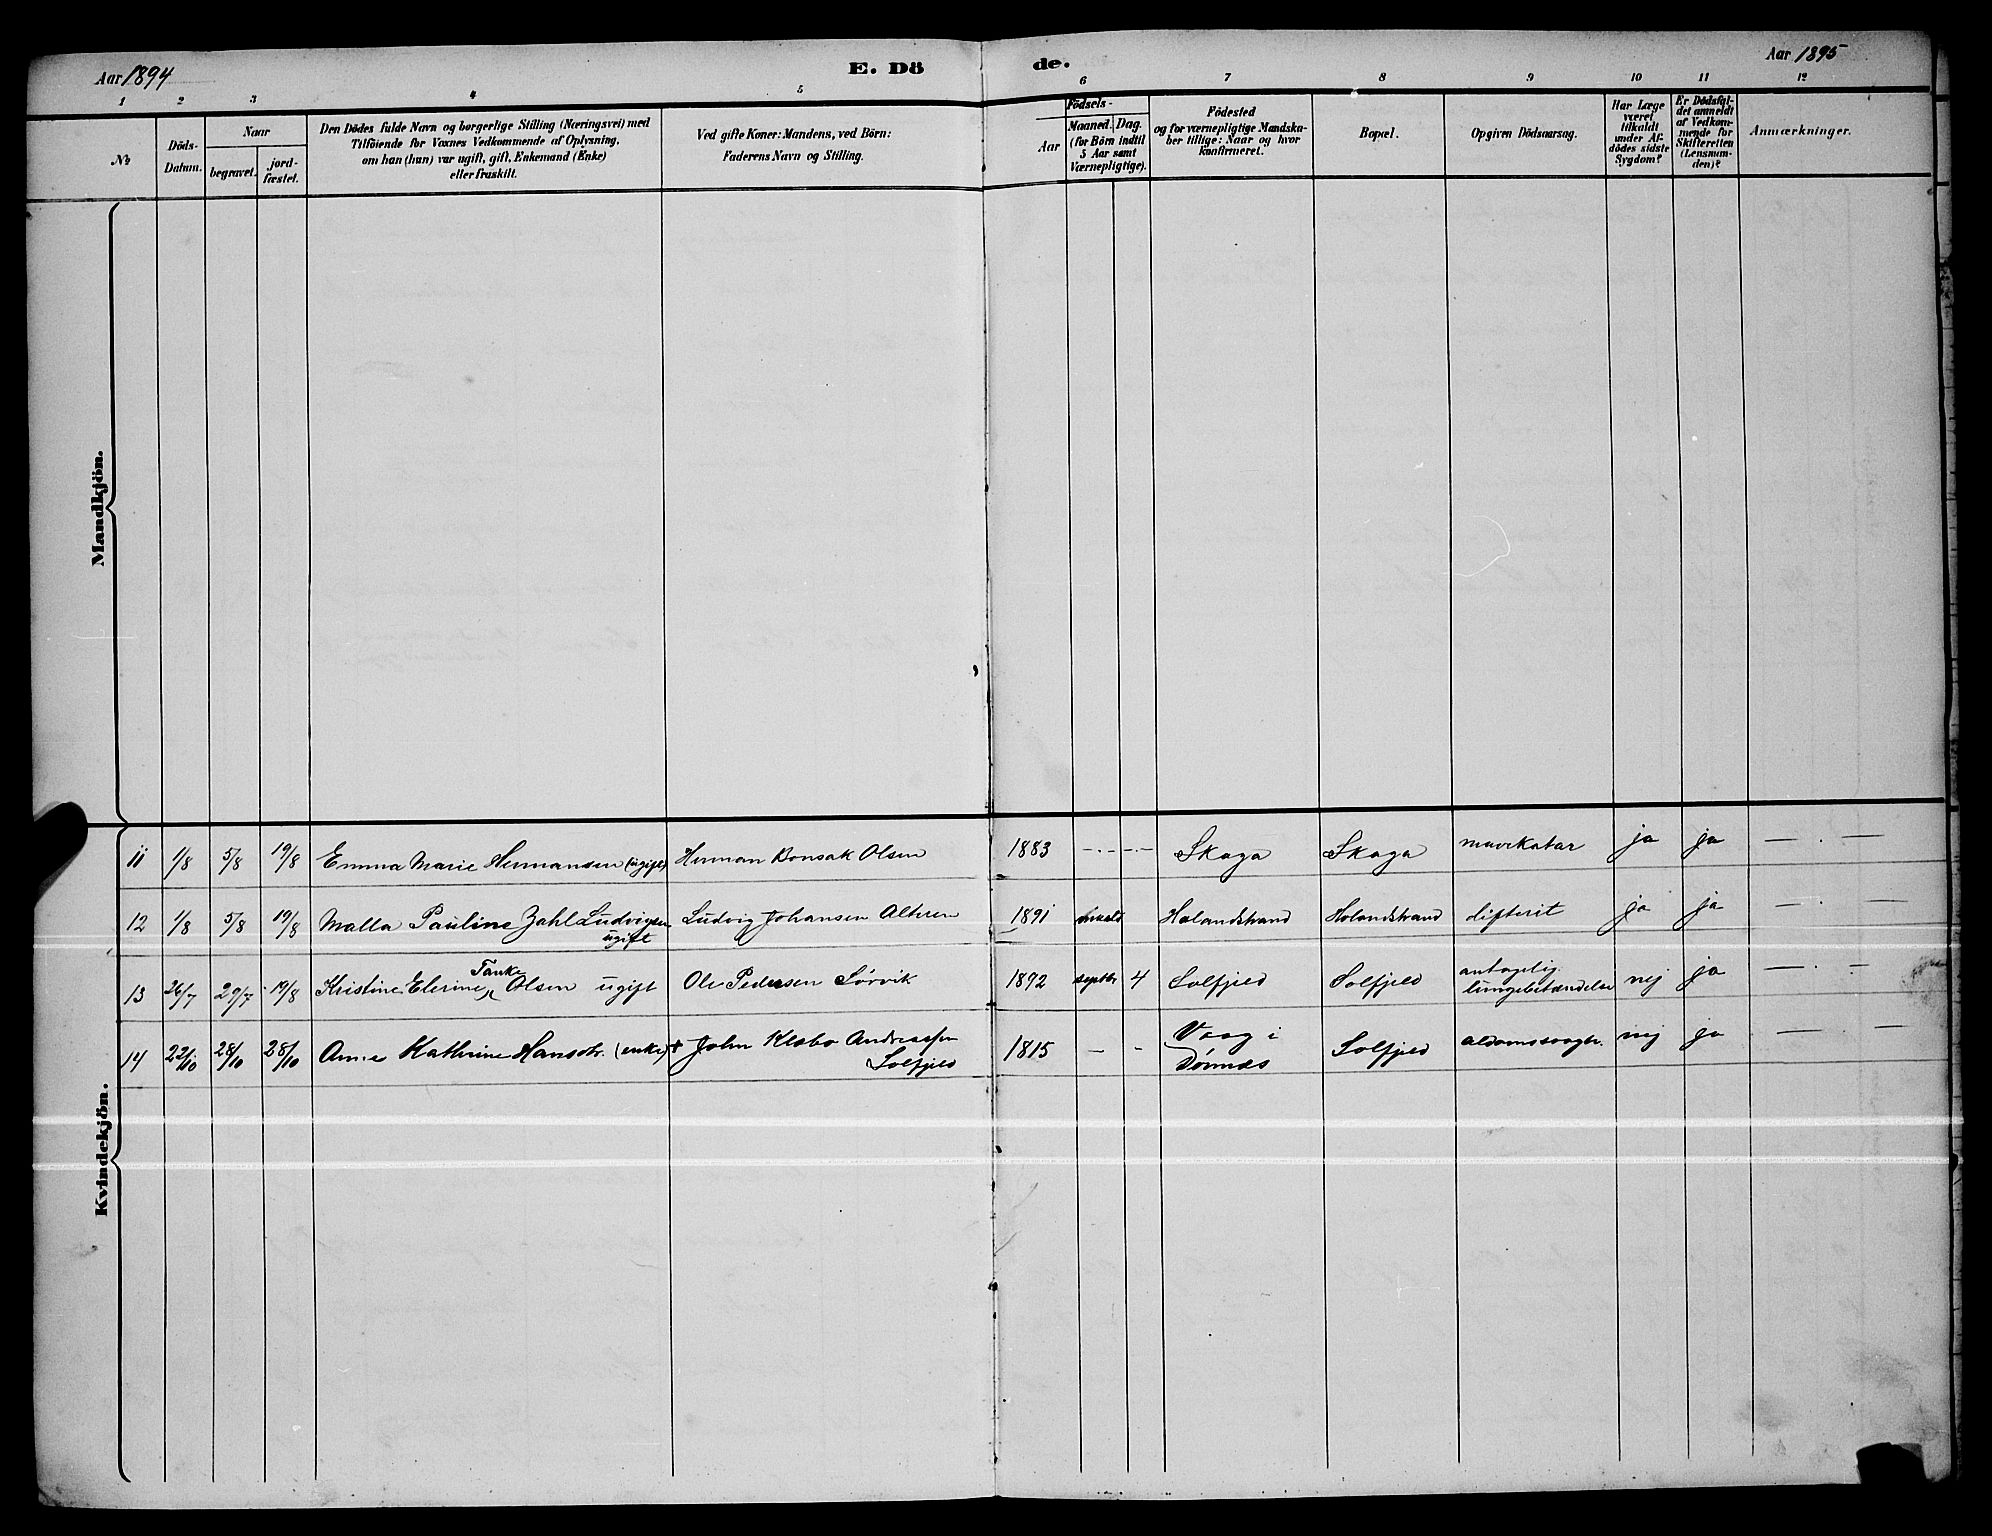 Aar 1894
E. Dö
de.
Aar 1895
1 2 3 4 5 6 7 8 9 10 11 12
No
Döds-Datum.
Naar
begravet.
jord-fæstet.
Den Dödes fulde Navn og borgerlige Stilling (Næringsvei) med
Tilföiende for Voxnes Vedkommende af Oplysning,
om han (hun) var ugift, gift, Enkemand (Enke)
eller fraskilt.
Ved gifte Koner: Mandens, ved Börn:
Faderens Navn og Stilling.
Födsels-
Aar
Maaned. Dag.
(for Börn indtil
5 Aar samt
Værnepligtige).
Födested
og for værnepligtige Mandska-
ber tillige: Naar og hvor
konfirmeret.
Bopæl.
Opgiven Dödsaarsag.
Har Læge
været
tilkaldt
under Af-
dödes sidste
Sygdom?
Er Dödsfal-
det anmeldt
af Vedkom-
mende for
Skifteretten
(Lensman-
den)?
Anmærkninger.
Mandkjön.
Kvindekjön.
11 1/8 5/8 19/8 Emma Marie Hermansen (ugift) Herman Bonsak Olsen 1883 — . — . — Skaga Skaga mavekatar ja ja — . —
12 1/8 5/8 19/8 Malla Pauline Zahl Ludvigsen Ludvig Johansen Alteren 1891 Holandstrand Holandstrand difterit ja ja — . —
ugift
13 26/7 29/7 19/8 Kristine Elerine Tanke Olsen ugift Ole Pedersen Sörvik 1892 septbr 4 Solfjeld Solfjeld antagelig nej ja — . —
lungebetændelse
14 22/10 28/10 28/10 Anne Kathrine Hansdr. (enke) + John Klæbo Andreassen 1815 — - Vaag i Solfjeld nej ja — . —
Solfjeld Dönnæs